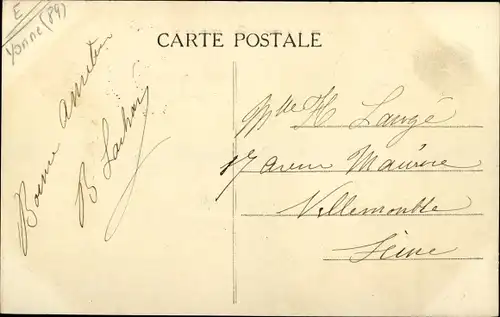 E
Yonne (89)
CARTE POSTALE
Bonne amitié
B. Lachaz
Mlle H Langé
17 Avenue Maurice
Villemomble
Seine